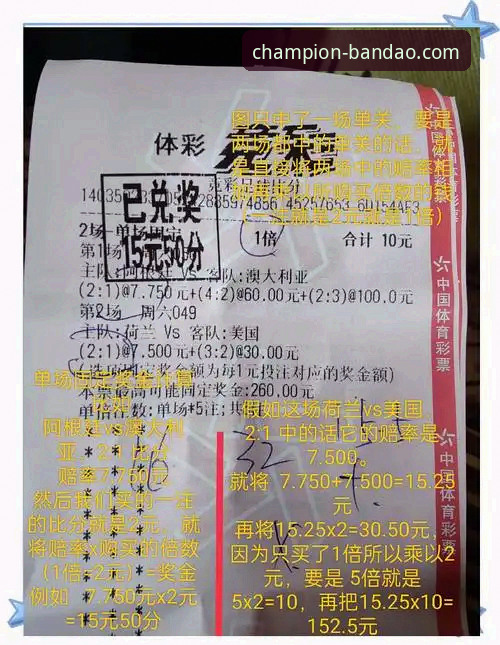 champion-bandao.com
图只中了一场单关，要是
两场都中的单关的话，就
是直接将两场中的赔率相
（一注就是2元就是1倍）
体彩
已兑奖
15元50分
2场-单场固定
1倍
合计 10元
第1场
主队:阿根廷 Vs 客队:澳大利亚
(2:1)@7.750元+(4:2)@60.00元+(2:3)@100.0元
第2场 周六049
主队:荷兰 Vs 客队:美国
(2:1)@7.500元+(3:2)@30.00元
(选项固定奖金额为每1元投注对应的奖金额)
本票最高可能固定奖金:260.00元
单倍注数:单场*5注;共
中国体育彩票
中国体育彩票
单场固定奖金计算
阿根廷vs澳大利
亚，2:1 比分
赔率7.750元
然后我们买的一注
的比分就是2元，就
将赔率x购买的倍数
（1倍=2元）=奖金
例如 7.750元x2元
=15元50分
假如这场荷兰vs美国
2:1 中的话它的赔率是
7.500。
就将 7.750+7.500=15.25
元
再将15.25x2=30.50元，
因为只买了1倍所以乘以2
元，要是 5倍就是
5x2=10，再把15.25x10=
152.5元